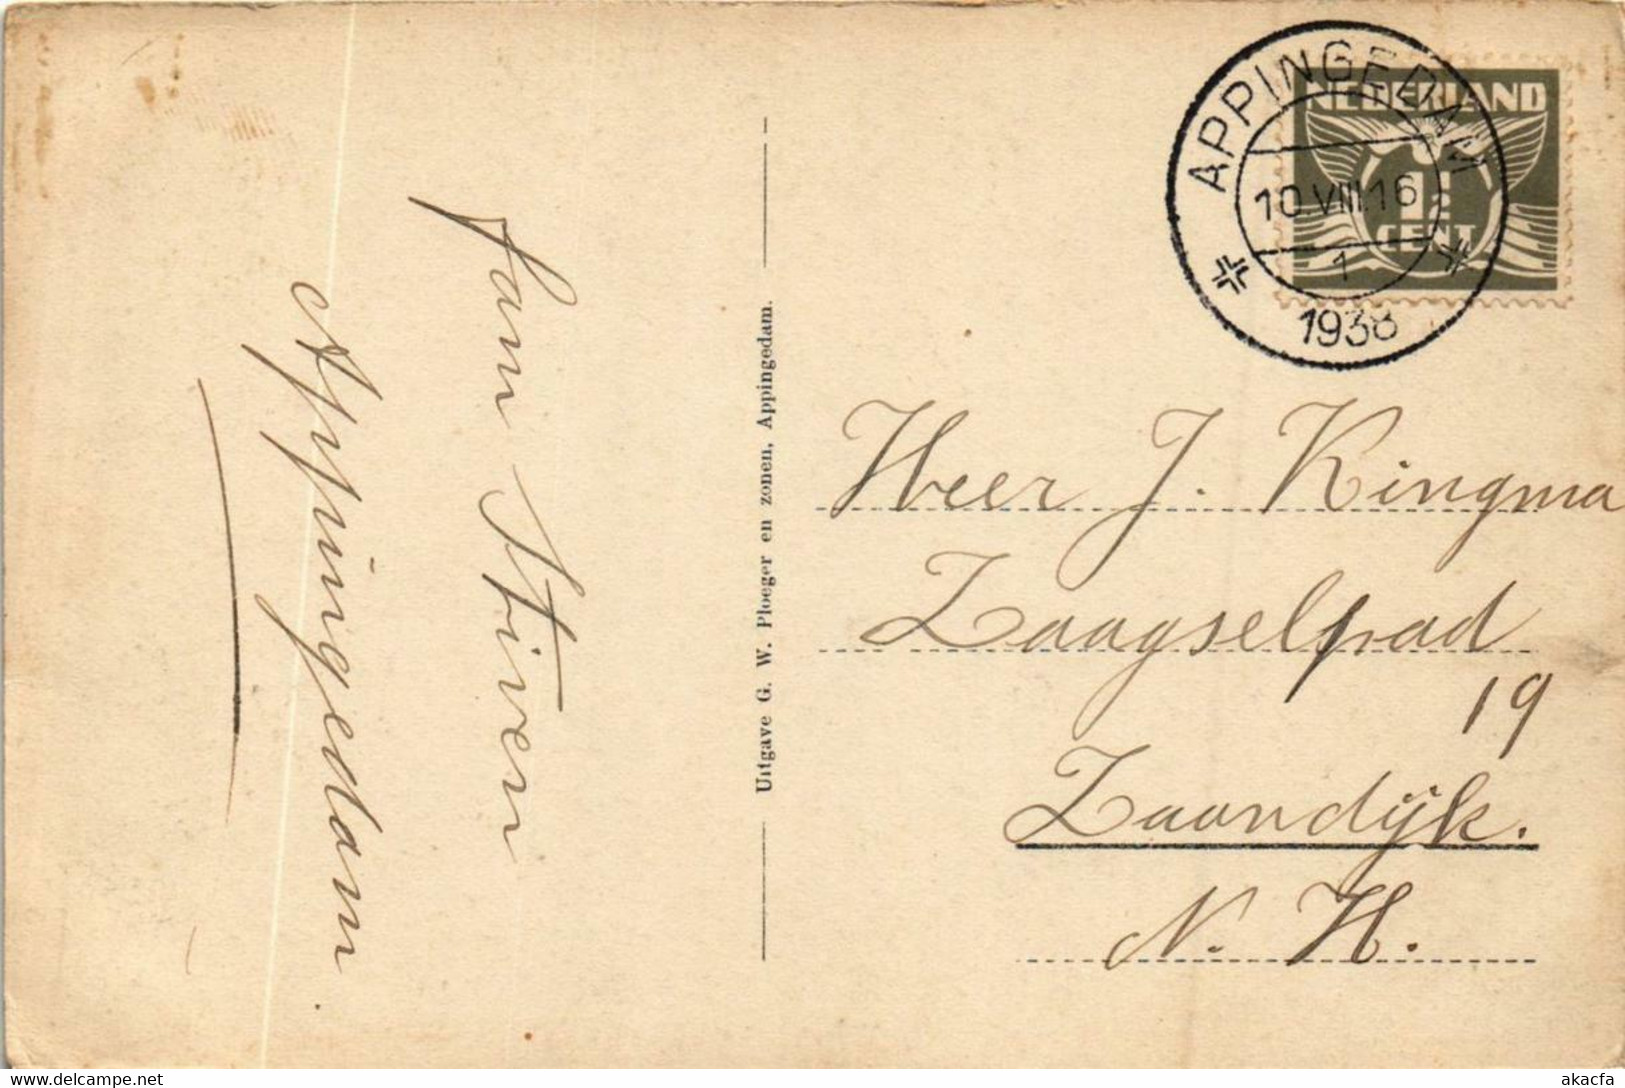 fam Stiven
Appingedam.
Uitgave G. W. Ploeger en zonen, Appingedam.
APPINGEDAM
10.VIII.16
1
1938
NEDERLAND
1½
CENT
Heer J. Kingma
Zaagselpad
19
Zaandijk.
N. H.
www.delcampe.net
akacfa